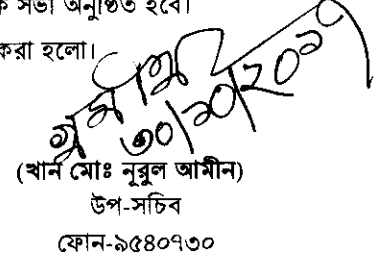 সভা অনুষ্ঠিত হবে।
করা হলো।
৩০/১০/২০১৭
(খান মোঃ নূরুল আমীন)
উপ-সচিব
ফোন-৯৫৪০৭৩০